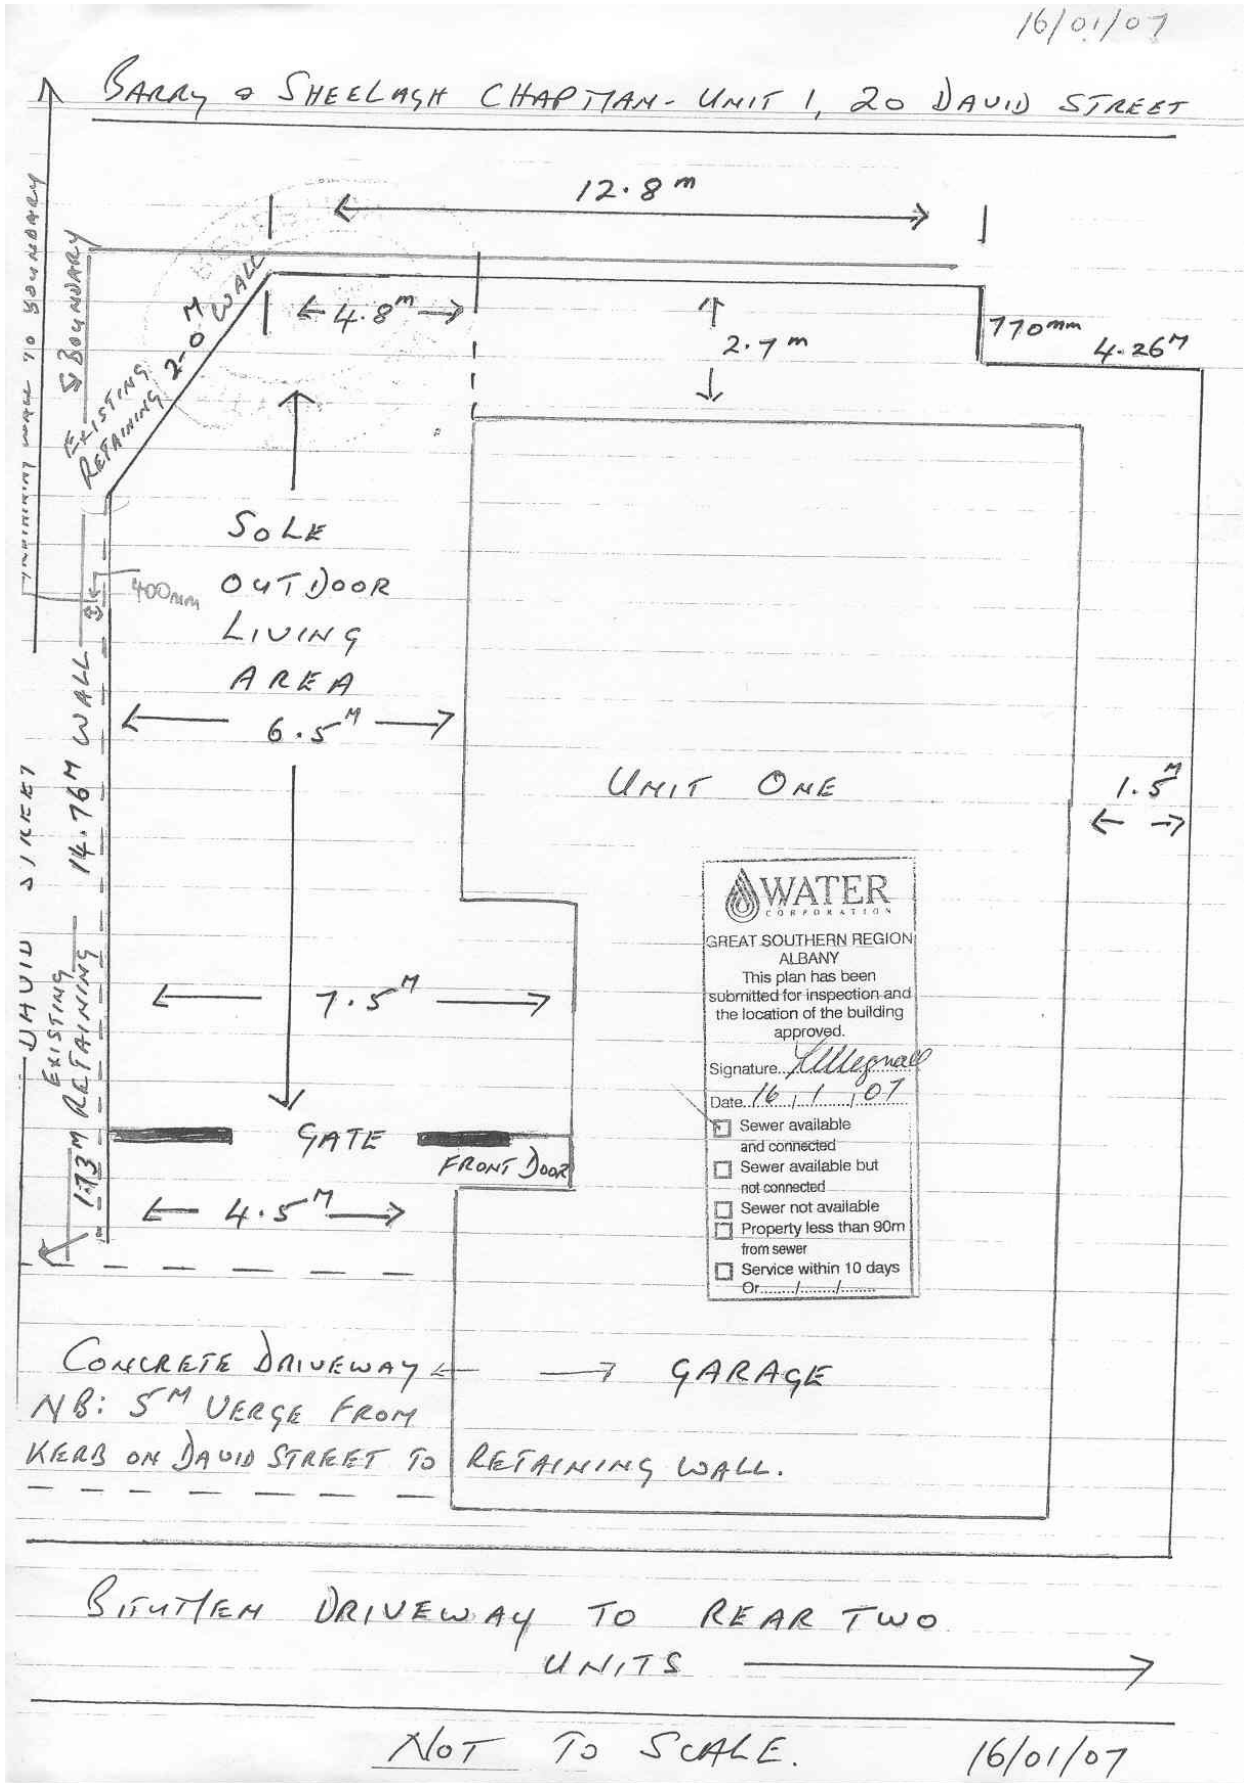 16/01/07
BARRY & SHEELAGH CHAPMAN - UNIT 1, 20 DAVID STREET
12.8m
WALL TO BOUNDARY
BOUNDARY
EXISTING
RETAINING 2-0M WALL
4.8m
2.7m
770mm
4.26M
400mm
SOLE
OUTDOOR
LIVING
AREA
6.5M
UNIT ONE
1.5M
DAVID STREET
EXISTING
1.73M RETAINING 14.76M WALL
7.5M
GATE
FRONT DOOR
4.5M
WATER
CORPORATION
GREAT SOUTHERN REGION
ALBANY
This plan has been
submitted for inspection and
the location of the building
approved.
Signature
Date 16/1/07
Sewer available
and connected
Sewer available but
not connected
Sewer not available
Property less than 90m
from sewer
Service within 10 days
Or......./......../........
CONCRETE DRIVEWAY
GARAGE
NB: 5M VERGE FROM
KERB ON DAVID STREET TO RETAINING WALL.
BITUMEN DRIVEWAY TO REAR TWO
UNITS
NOT TO SCALE.
16/01/07